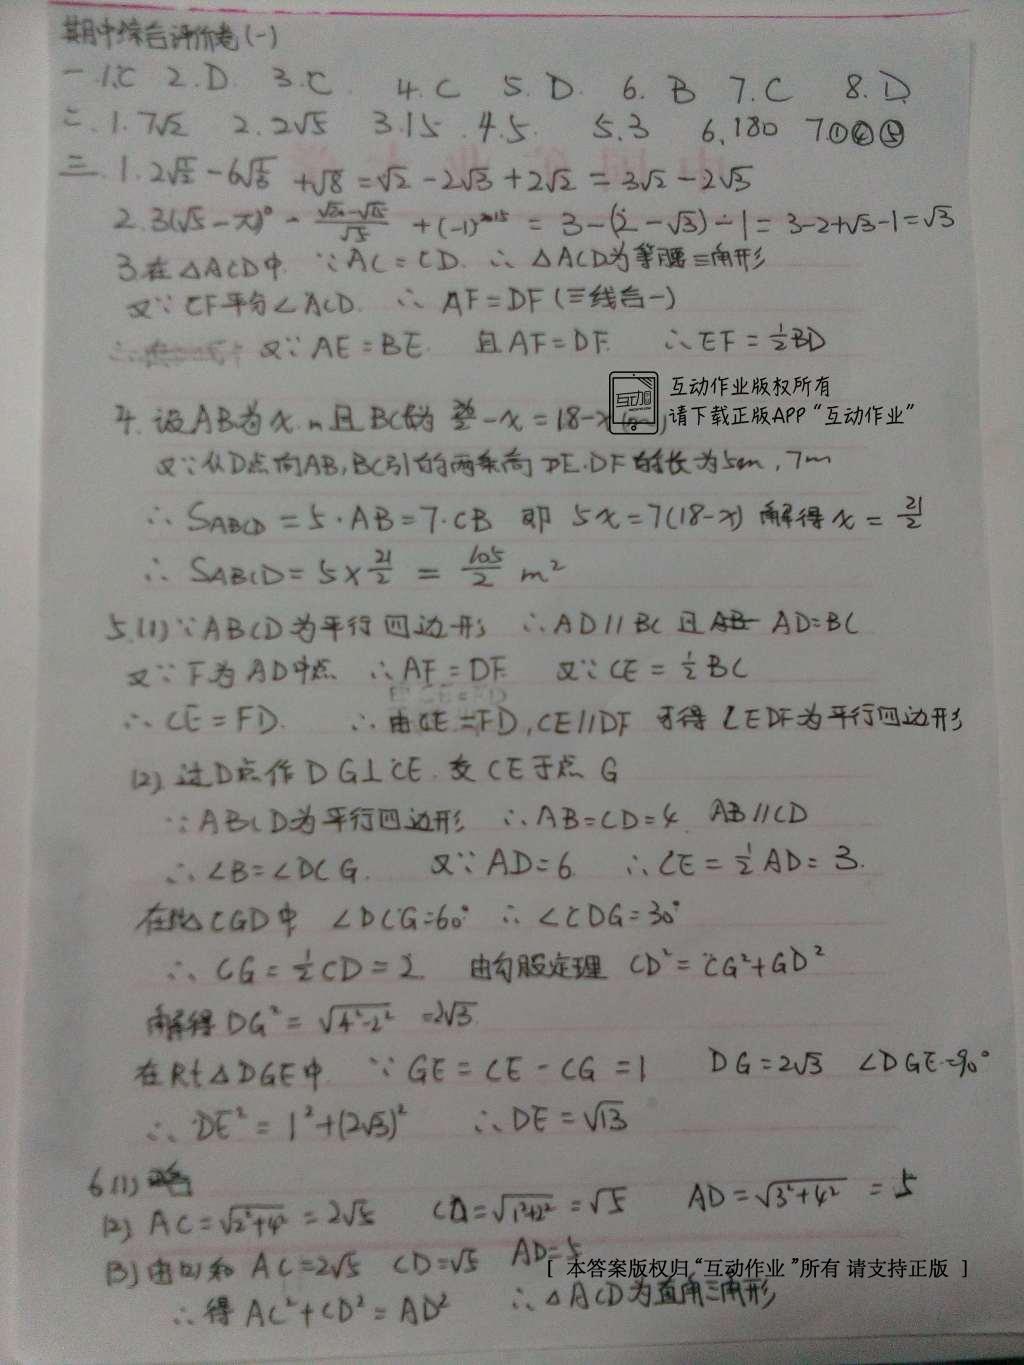 期中综合评价卷(一)
一 1.C 2.D 3.C 4.C 5.D. 6.B 7.C 8.D
二.1.7√2 2.2√5 3.15 4.5. 5.3 6.180 7.①④⑤
三.1.2√½ - 6√⅓ + √8 = √2 - 2√3 + 2√2 = 3√2 - 2√3
2. 3(√5 - π)⁰ - (√20 - √15)/√5 + (-1)²⁰¹⁵ = 3 - (2 - √3) - 1 = 3-2+√3-1 = √3
3.在△ACD中 ∵AC=CD. ∴△ACD为等腰三角形
又∵CF平分∠ACD. ∴ AF=DF(三线合一)
又∵AE=BE. 且AF=DF. ∴EF=½BD
互动作业版权所有
请下载正版APP“互动作业”
4. 设AB为x m且BC为 -x=18-x
又∵从D点向AB,BC引的两条高DE.DF的长为5m,7m
∴ SABCD = 5·AB=7·CB 即 5x=7(18-x) 解得x=21/2
∴ SABCD=5×21/2 = 105/2 m²
5.(1)∵ABCD为平行四边形 ∴AD//BC且AD=BC
又∵F为AD中点 ∴AF=DF 又∵CE=½BC
∴CE=FD. ∴由CE=FD,CE//DF 可得CEDF为平行四边形
(2).过D点作DG⊥CE.交CE于点G
∵ABCD为平行四边形 ∴AB=CD=4 AB//CD
∴∠B=∠DCG. 又∵AD=6. ∴CE=½AD=3.
在△CGD中 ∠DCG=60° ∴∠CDG=30°
∴CG=½CD=2 由勾股定理 CD²=CG²+GD²
解得DG²=√4²-2² =2√3
在Rt△DGE中 ∵GE=CE-CG=1 DG=2√3 ∠DGE=90°
∴DE²=1²+(2√3)² ∴DE=√13
6.(1)略
(2) AC=√2²+4²=2√5 CD=√1²+2²=√5 AD=√3²+4²=5
(3)由(2)知 AC=2√5 CD=√5 AD=5
[ 本答案版权归“互动作业 ”所有 请支持正版 ]
∴得AC²+CD²=AD² ∴△ACD为直角三角形